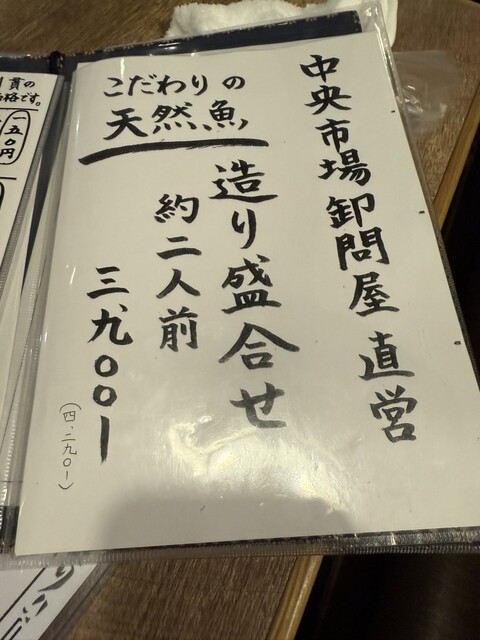 中央市場卸問屋直営
こだわりの
天然魚
造り盛合せ
約二人前
三、九〇〇ー
(四、二九〇ー)
貫の
価格です。
一五〇円